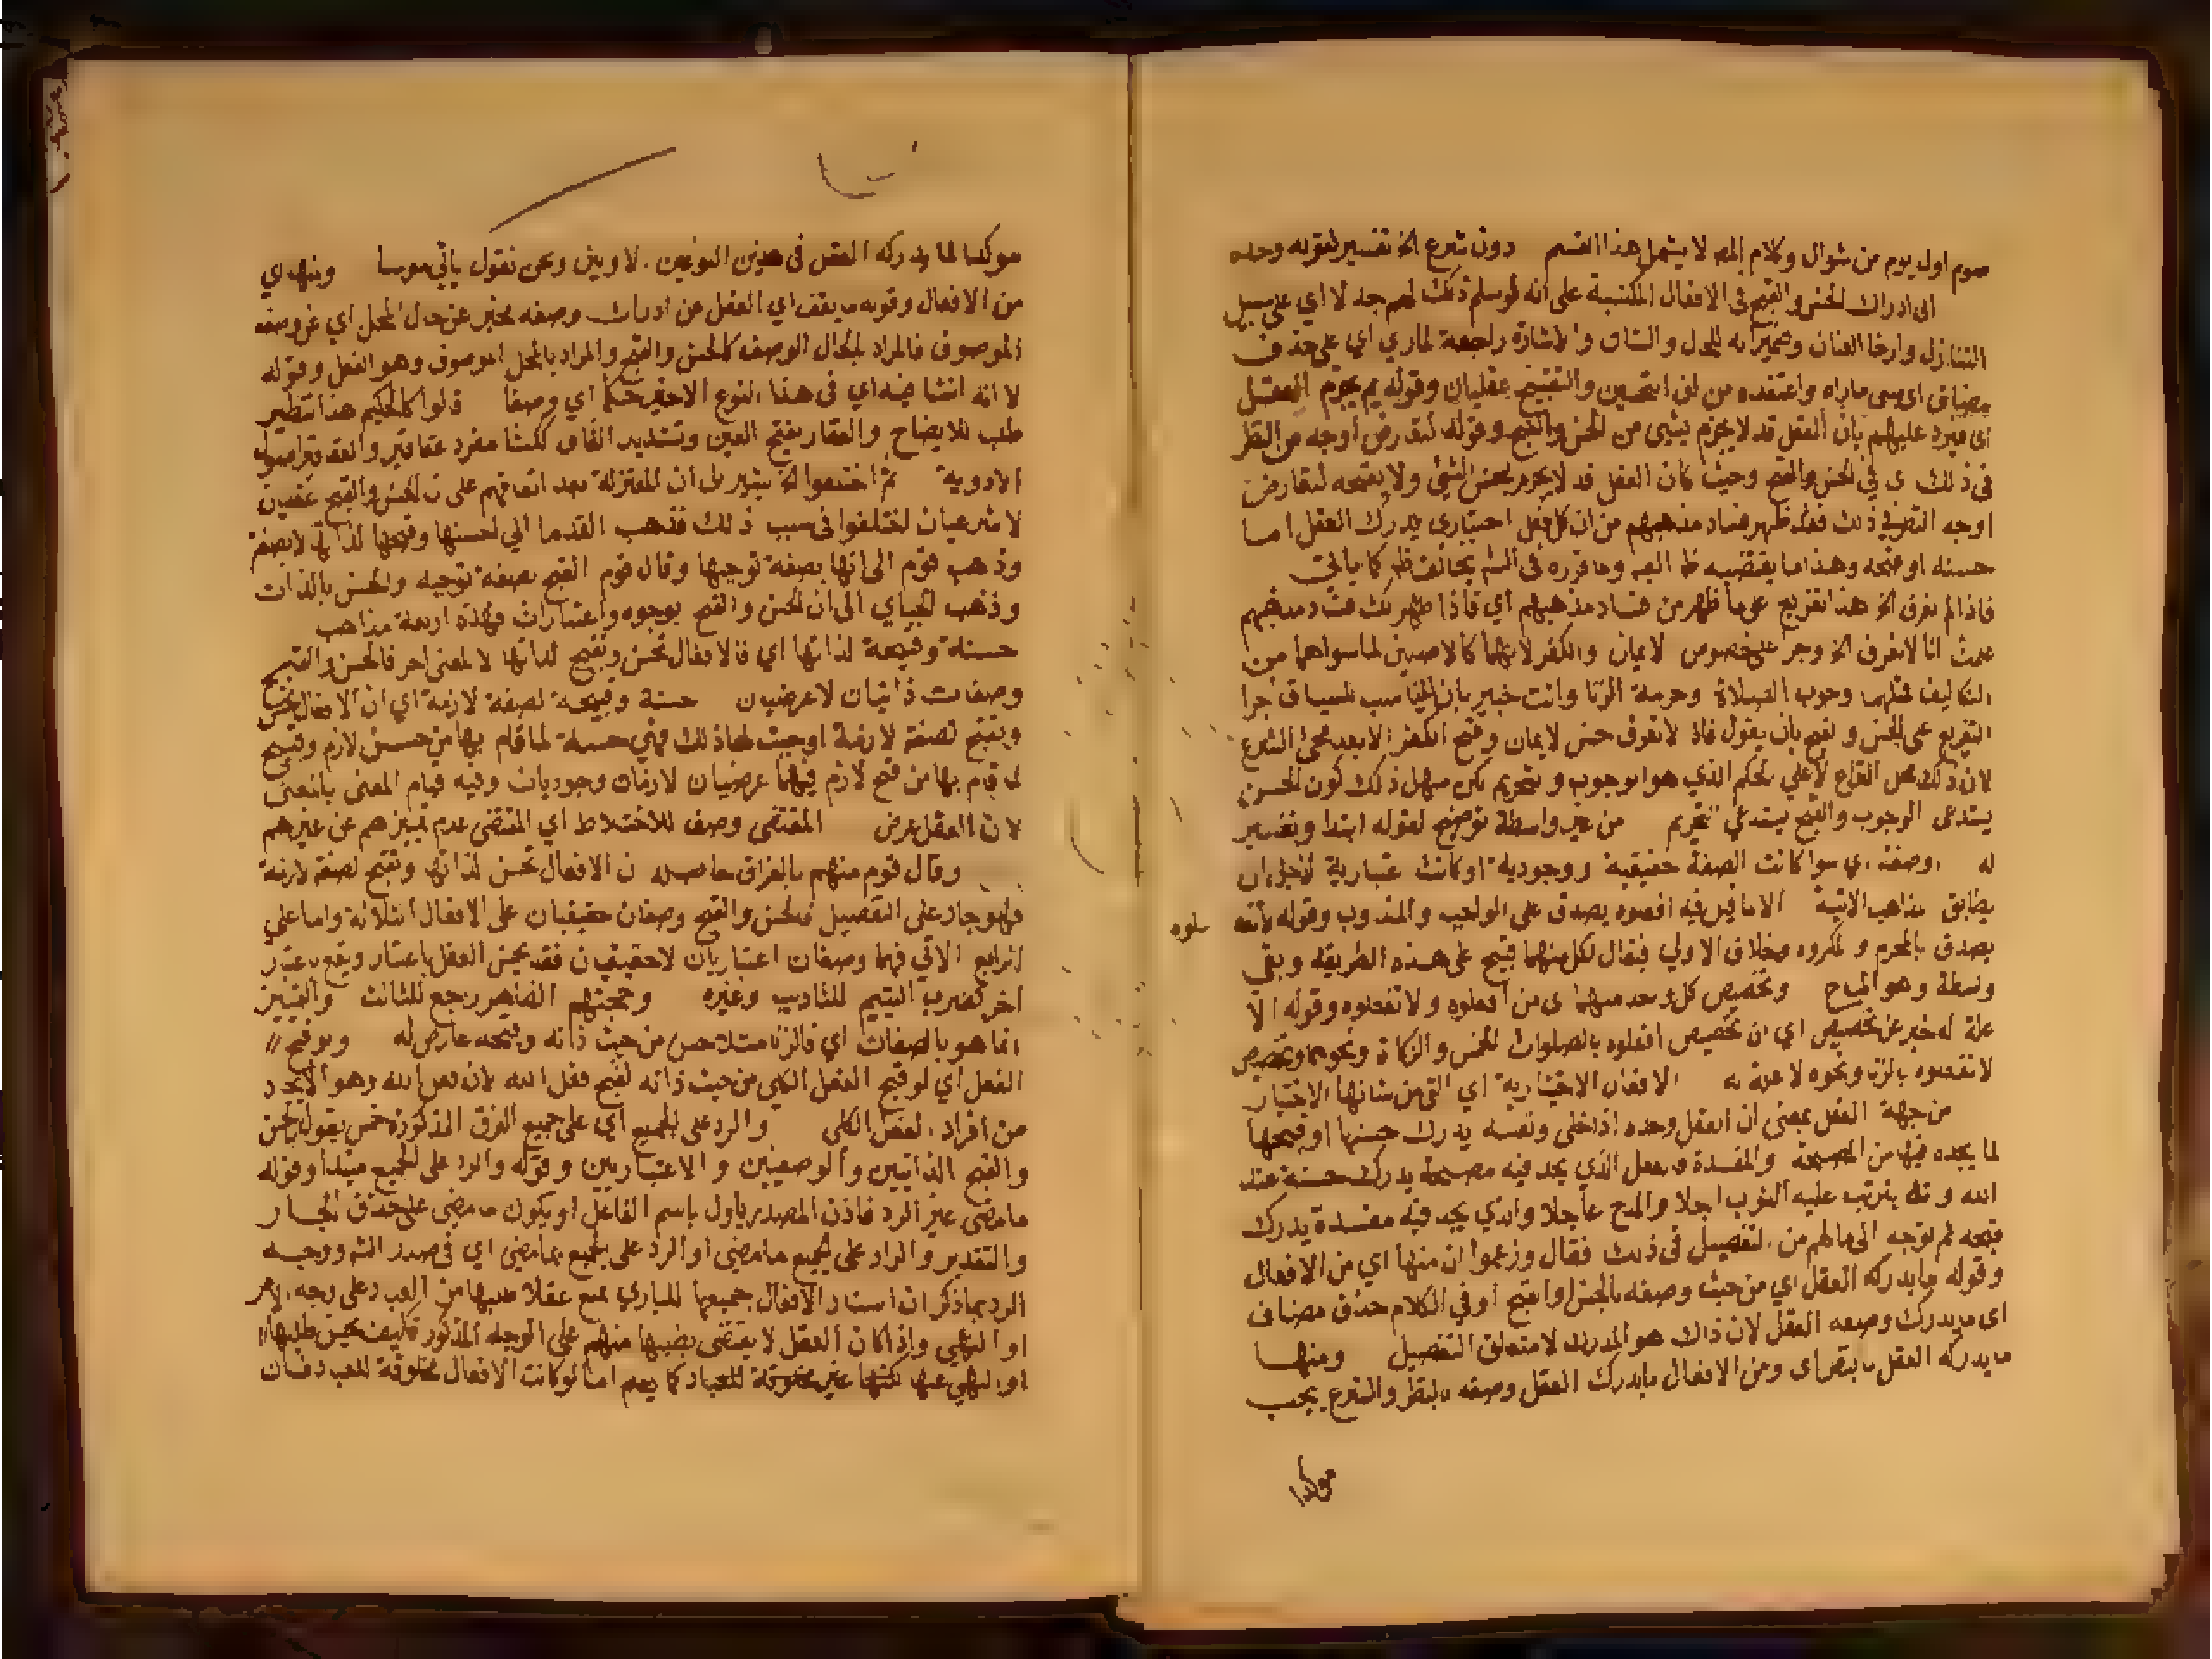 صوم اول يوم من شوال وكلام المص لا يشمل هذا القسم دون شرع الخ تفسير لقوله وحده
الى ادراك الحسن والقبح في الافعال المكتسبة على انه لو سلم ذلك لهم جدلا اي على سبيل
التنازل وارخا العنان وضميرانه للحال والشان والاشارة راجعة لماري اي على حذف
مضاف اي واعتقده من ان التحسين والتقبيح عقليان وقوله لم يجزم العقل
اي فيرد عليهم بأن العقل قد لا يجزم بشي من الحسن والقبح وقوله لتعارض اوجه من النظر
في ذلك اي في الحسن والقبح وحيث كان العقل قد لا يجزم بحسن الشئ ولا بقبحه لتعارض
اوجه النظر في ذلك فقد ظهر فساد مذهبهم من ان كل فعل اختياري يدرك العقل اما
حسنه او قبحه وهذا ما يقتضيه وما قرره في الشم يخالف كما ياتي
فاذا لم نفرق الخ هذا تفريع على ما ظهر من فساد مذهبهم اي فاذا ظهر لك فساد مذهبهم
علمت انا لا نفرق الخ على خصوص الايمان والكفر لانهما كالاصلين لما سواهما من
التكاليف فمثلهما وجوب الصلاة وحرمة الزنا وانت خبير بان المناسب للسياق اجرا
التفريع على الحسن والقبح بان يقول فاذا لا نفرق حسن الايمان وقبح الكفر الا بعد مجئ الشرع
لان ذلك محل النزاع لا على الحكم الذي هو الوجوب والتحريم لكن سهل ذلك كون الحسن
يستدعى الوجوب والقبح يستدعي التحريم من غير واسطة توضيح لقوله ابتدا وتفسير
له اوصفة اي سوا كانت الصفة حقيقية وجودية او كانت اعتبارية لاجل ان
يطابق المذاهب الاتية الا ما قيل فيه افعلوه يصدق على الواجب والمندوب وقوله لا تفعلوه
يصدق بالمحرم والمكروه وخلاف الاولى فيقال لكل منهما قبيح على هذه الطريقة وبقى
واسطة وهو المباح وتخصيص كل واحد منهما اي من افعلوه ولا تفعلوه وقوله الا
علة له خبر عن تخصيص اي ان تخصيص افعلوه بالصلوات الخمس والزكاة ونحوهما وتخصيص
لا تفعلوه بالزنا ونحوه لا علة له الافعال الاختيارية اي التي من شانها الاختيار
من جهة العقل بمعنى ان العقل وحده اذا خلى ونفسه يدرك حسنها او قبحها
لما يجده فيها من المصلحة والمفسدة فالفعل الذي يجد فيه مصلحة يدرك حسنه عند
الله وانه يترتب عليه الثواب اجلا والمدح عاجلا والذي يجد فيه مفسدة يدرك
قبحه ثم توجه الى ما لهم من التفصيل في ذلك فقال وزعموا ان منها اي من الافعال
وقوله ما يدركه العقل اي من حيث وصفه بالحسن والقبح او في الكلام حذف مضاف
اي ما يدرك وصفه العقل لان ذاك هو المدرك لا متعلق التفصيل ومنها
ما يدركه العقل بالنظر اي ومن الافعال ما يدرك العقل وصفه بالنظر والشرع يجب
موكدا
موكدا لما يدركه العقل في هذين النوعين الاولين ونحن نقول ياتي موسسا ومنها اي
من الافعال وقوله ما يقف اي العقل عن ادراك وصفه مخبر عن حال المحل اي عن وصف
الموصوف فالمراد بالحال الوصف كالحسن والقبح والمراد بالمحل الموصوف وهو الفعل وقوله
لا انه انشا فيه اي في هذا النوع الاخير حكما اي وصفا قالوا كالحكيم هذا تنظير
طلب للايضاح والعقار بفتح العين وتشديد القاف مفرد عقاقير والعقاقير اصول
الادوية ثم اختلفوا الخ يشير الى ان المعتزلة بعد اتفاقهم على ان الحسن والقبح عقليان
لا شرعيان اختلفوا في سبب ذلك فذهب القدما الي ان حسنها وقبحها لذاتها لا بصفة
وذهب قوم الى انها بصفة توجبها وقال قوم القبح بصفة توجبه والحسن بالذات
وذهب الجباي الى ان الحسن والقبح بوجوه واعتبارات فهذه اربعة مذاهب
حسنة وقبيحة لذاتها اي فالافعال تحسن وتقبح لذاتها لا لمعنى اخر فالحسن والقبح
وصفات ذاتيان لا عرضيان حسنة وقبيحة لصفة لازمة اي ان الافعال تحسن
وتقبح لصفة لازمة اوجبت لها ذلك فهي حسنة لما قام بها من حسن لازم وقبيحة
لما قام بها من قبح لازم فهما عرضيان لازمان وجوديان وفيه قيام المعنى بالمعنى
لان الفعل عرض المقتضى وصف للاختلاط اي المقتضى عدم تمييزهم عن غيرهم
وقال قوم منهم بالفراق حاصله ان الافعال تحسن لذاتها وتقبح لصفة لازمة
فهو جار على التفصيل فالحسن والقبح وصفان حقيقيان على الاقوال الثلاثة واما على
الرابع الاتي فهما وصفان اعتباريان لا حقيقيان فقد يحسن الفعل باعتبار ويقبح باعتبار
اخر كضرب اليتيم للتاديب وغيره وحجتهم الضمير راجع للثالث والتمييز
انما هو بالصفات اي فالزنا مثلا حسن من حيث ذاته وقبحه عارض له ولو قبح
الفعل اي لو قبح الفعل الكلي من حيث ذاته لقبح فعل الله لان فعل الله
من افراد الفعل الكلى والرد على الجميع اي على جميع الفرق المذكورة ممن يقول بالحسن
والقبح الذاتيين والوصفيين والاعتباريين وقوله والرد على الجميع مبتدا وقوله
ما مضى عين الرد فاذن المصدر ياول باسم الفاعل او يكون ما مضى على حذف الجار
والتقدير والراد على الجميع ما مضى او الرد على الجميع بما مضى اي في صدر الشم ووجه
الرد بما ذكر ان اسناد الافعال جميعها للباري يمنع عقلا طلبها من العبد على وجه الامر
او النهي واذا كان العقل لا يقتضى طلبها منهم على الوجه المذكور فكيف يحسن طلبها
او النهي عنها لكنها غير مخلوقة للعباد كما يعلم اما لو كانت الافعال مخلوقة للعبد فان